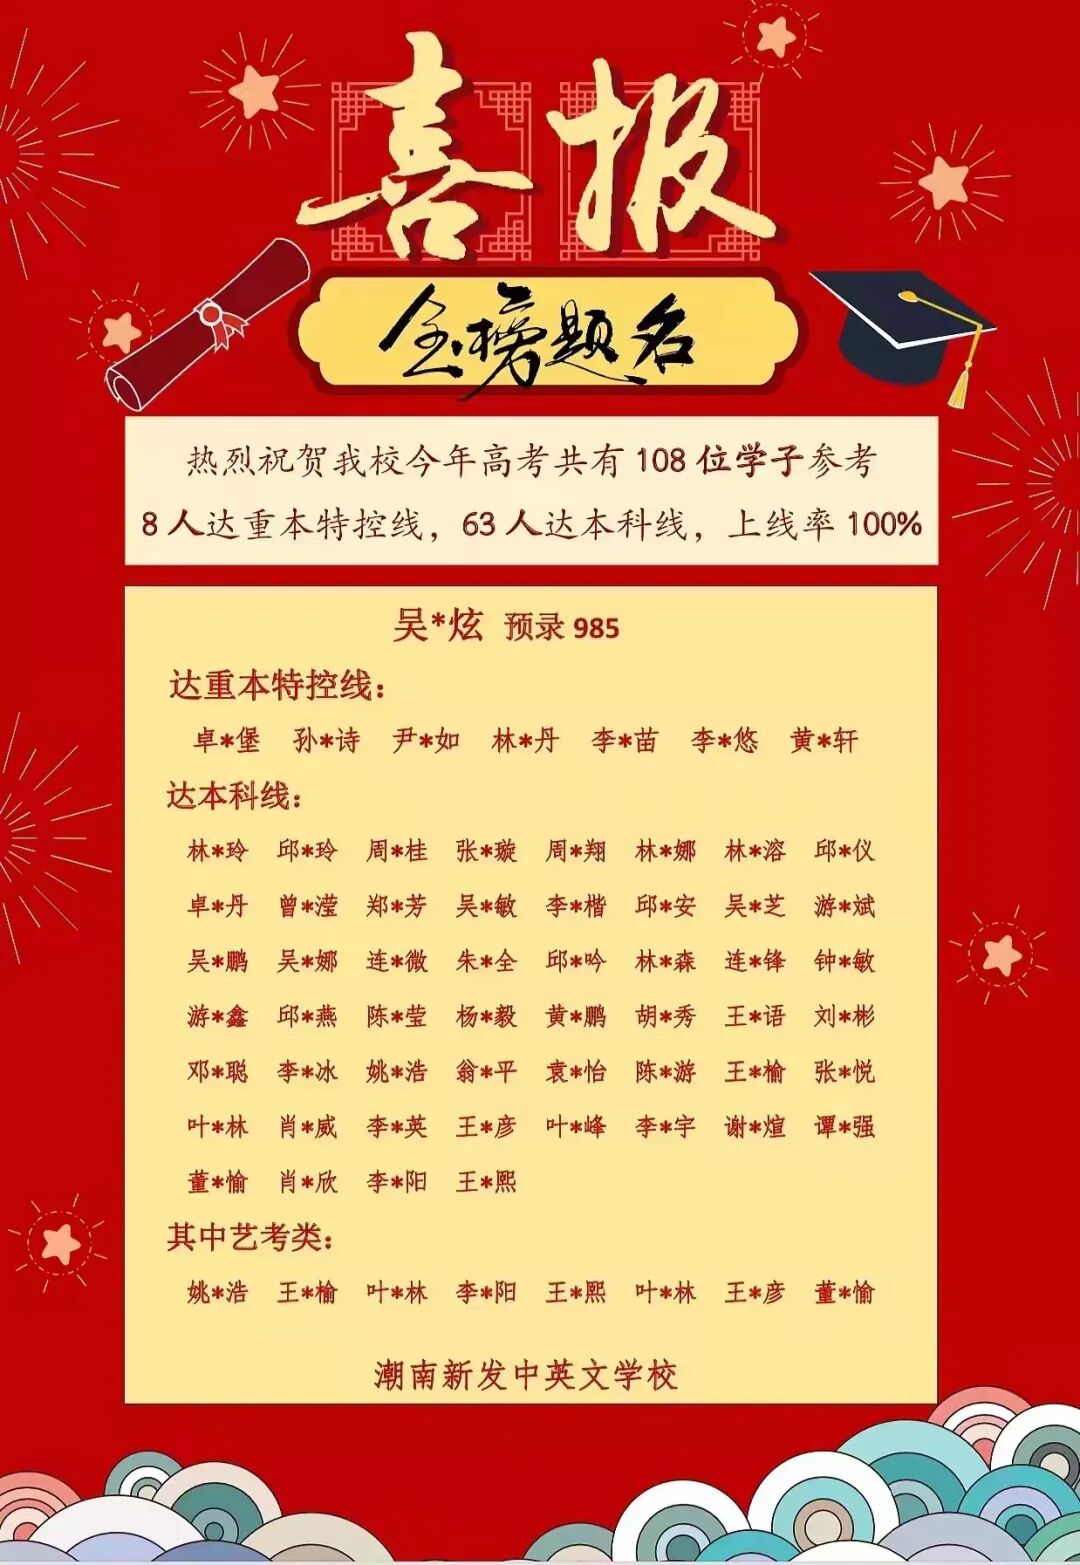 喜报
金榜题名
热烈祝贺我校今年高考共有 108 位学子参考
8 人达重本特控线，63 人达本科线，上线率 100%
吴*炫 预录 985
达重本特控线：
卓*堡 孙*诗 尹*如 林*丹 李*苗 李*悠 黄*轩
达本科线：
林*玲 邱*玲 周*桂 张*璇 周*翔 林*娜 林*溶 邱*仪
卓*丹 曾*滢 郑*芳 吴*敏 李*楷 邱*安 吴*芝 游*斌
吴*鹏 吴*娜 连*微 朱*全 邱*吟 林*森 连*锋 钟*敏
游*鑫 邱*燕 陈*莹 杨*毅 黄*鹏 胡*秀 王*语 刘*彬
邓*聪 李*冰 姚*浩 翁*平 袁*怡 陈*游 王*榆 张*悦
叶*林 肖*威 李*英 王*彦 叶*峰 李*宇 谢*煊 谭*强
董*愉 肖*欣 李*阳 王*熙
其中艺考类：
姚*浩 王*榆 叶*林 李*阳 王*熙 叶*林 王*彦 董*愉
潮南新发中英文学校